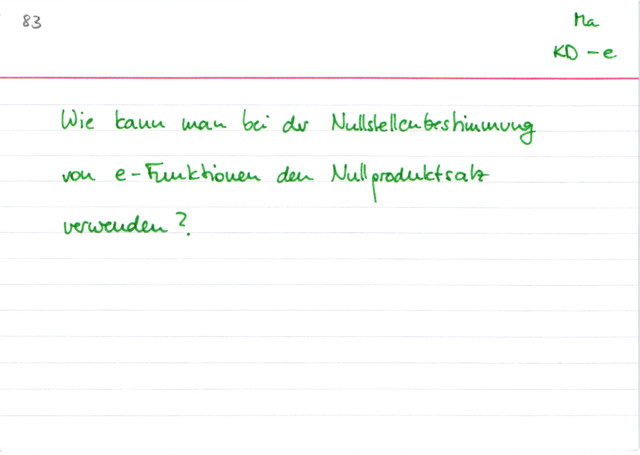 83
Ma
KD - e
Wie kann man bei der Nullstellenbestimmung
von e-Funktionen den Nullproduktsatz
verwenden?